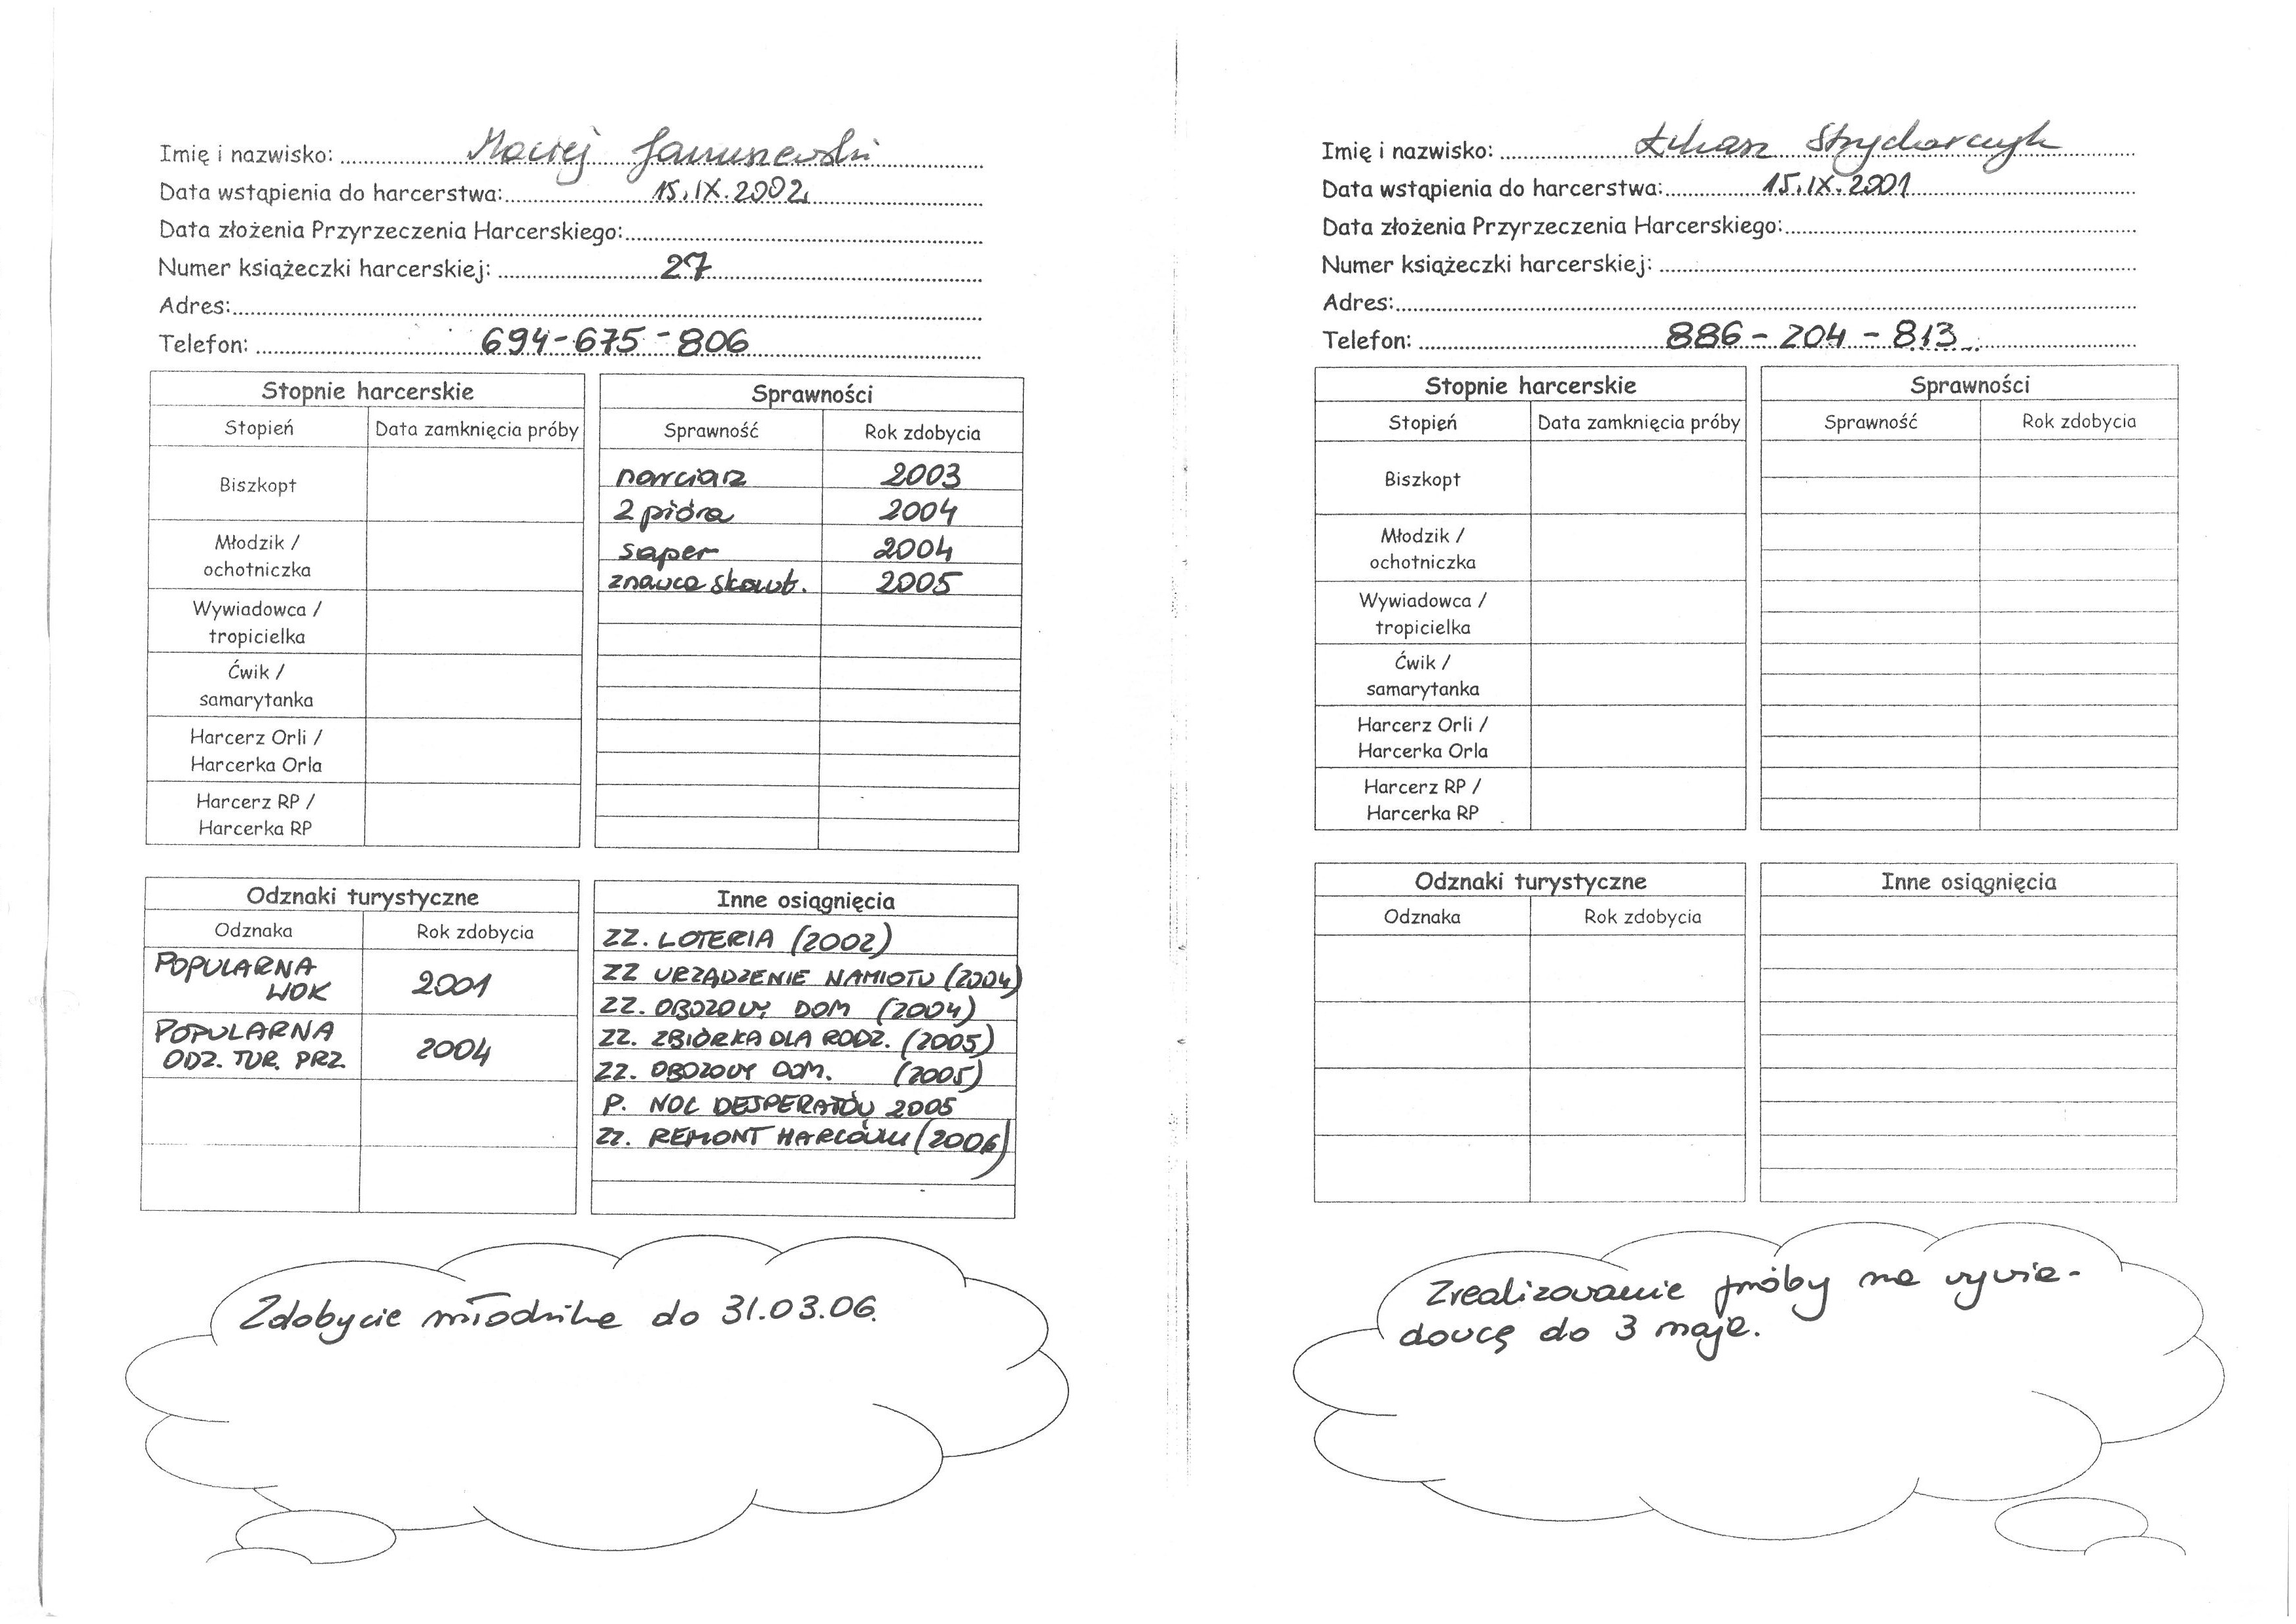 Imię i nazwisko: Maciej
Data wstąpienia do harcerstwa: 15.IX.2002
Data złożenia Przyrzeczenia Harcerskiego:
Numer książeczki harcerskiej: 27
Adres:
Telefon: 694-675-806
Stopnie harcerskie
Stopień Data zamknięcia próby
Biszkopt
Młodzik /
ochotniczka
Wywiadowca /
tropicielka
Ćwik /
samarytanka
Harcerz Orli /
Harcerka Orla
Harcerz RP /
Harcerka RP
Sprawności
Sprawność Rok zdobycia
narciarz 2003
2 pióra 2004
saper 2004
znawca skaut. 2005
Odznaki turystyczne
Odznaka Rok zdobycia
POPULARNA
WOK 2001
POPULARNA
ODZ. TUR. PRZ. 2004
Inne osiągnięcia
ZZ. LOTERIA (2002)
ZZ URZĄDZENIE NAMIOTU (2004)
ZZ. OBOZOWY DOM (2004)
ZZ. ZBIÓRKA DLA RODZ. (2005)
ZZ. OBOZOWY DOM. (2005)
P. NOC DESPERATÓW 2005
ZZ. REMONT HARCÓWKI (2006)
Zdobycie młodzika do 31.03.06.
Imię i nazwisko: Łukasz Strycharczyk
Data wstąpienia do harcerstwa: 15.IX.2001
Data złożenia Przyrzeczenia Harcerskiego:
Numer książeczki harcerskiej:
Adres:
Telefon: 886-204-813
Stopnie harcerskie
Stopień Data zamknięcia próby
Biszkopt
Młodzik /
ochotniczka
Wywiadowca /
tropicielka
Ćwik /
samarytanka
Harcerz Orli /
Harcerka Orla
Harcerz RP /
Harcerka RP
Sprawności
Sprawność Rok zdobycia
Odznaki turystyczne
Odznaka Rok zdobycia
Inne osiągnięcia
Zrealizowanie próby na wywia-
dowcę do 3 maja.